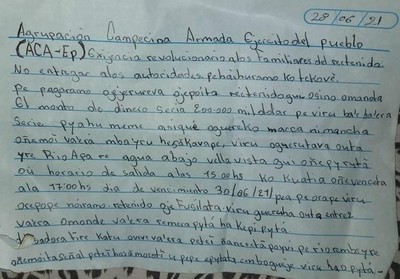 28/06/21
Agrupación Campecina Armada Ejercito del pueblo
(ACA-EP) Exijencia revolucionario alos Familiares del rectenida
No entregar alos autoridades pehaihuramo Ko tekove.
pe pagaramo ogjerureva ojepoita reitenidogui osino omanota
El monto de dinero Seria 200.000 mil dolar pe viru ba'e
Serie pyahu meme anique oguereko marca ni mancha
oñemoi vaera mbayru hepykavape, viru ogucrutava outa
yre Rio Apa re agua abajo vella vista gui oñepyruta
ou horario de salida alas 15:00hs Ko Kuatia
ala 17:00hs dia de vencimiento 30/06/21/ pea pe ora pe viru
ocepope noiramo retenido oje Fusilata. viru guerutva outa
vaera omonde vaera remera pytá ha Kepi pytá
pe rio embe yre
oñemoita señal petei hu'a morotî u pepe viru hao pyta.-